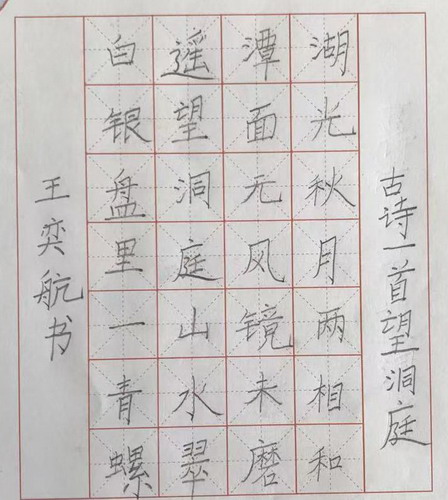 古诗一首望洞庭
湖光秋月两相和
潭面无风镜未磨
遥望洞庭山水翠
白银盘里一青螺
王奕航书